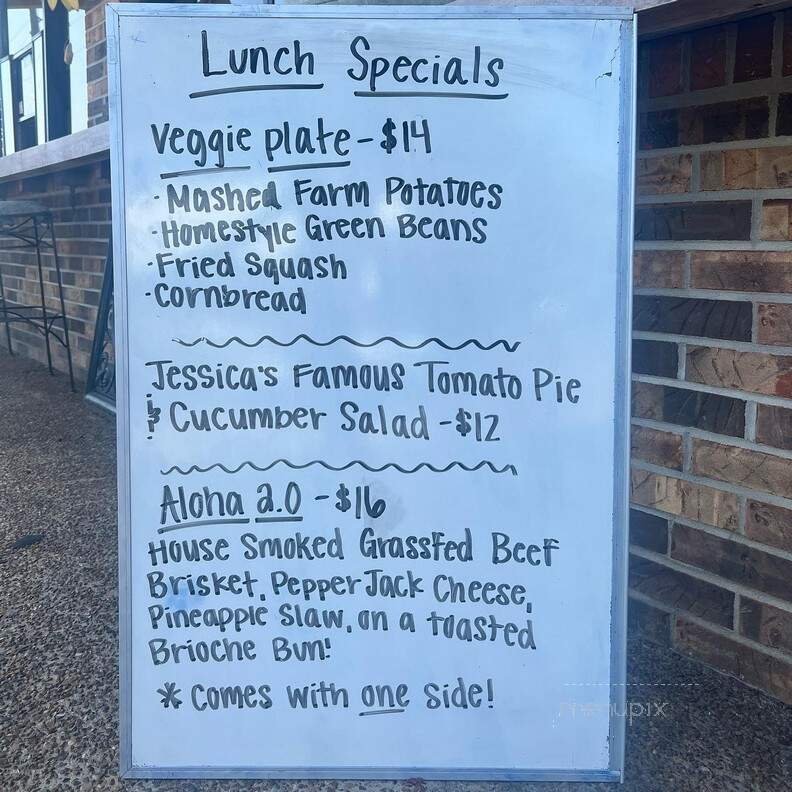 Lunch Specials
Veggie Plate - $14
· Mashed Farm Potatoes
· Homestyle Green Beans
· Fried Squash
· Cornbread
Jessica's Famous Tomato Pie
& Cucumber Salad - $12
Aloha 2.0 - $16
House Smoked Grassfed Beef
Brisket, Pepper Jack Cheese,
Pineapple Slaw, on a toasted
Brioche Bun!
* Comes with one side!
menupix